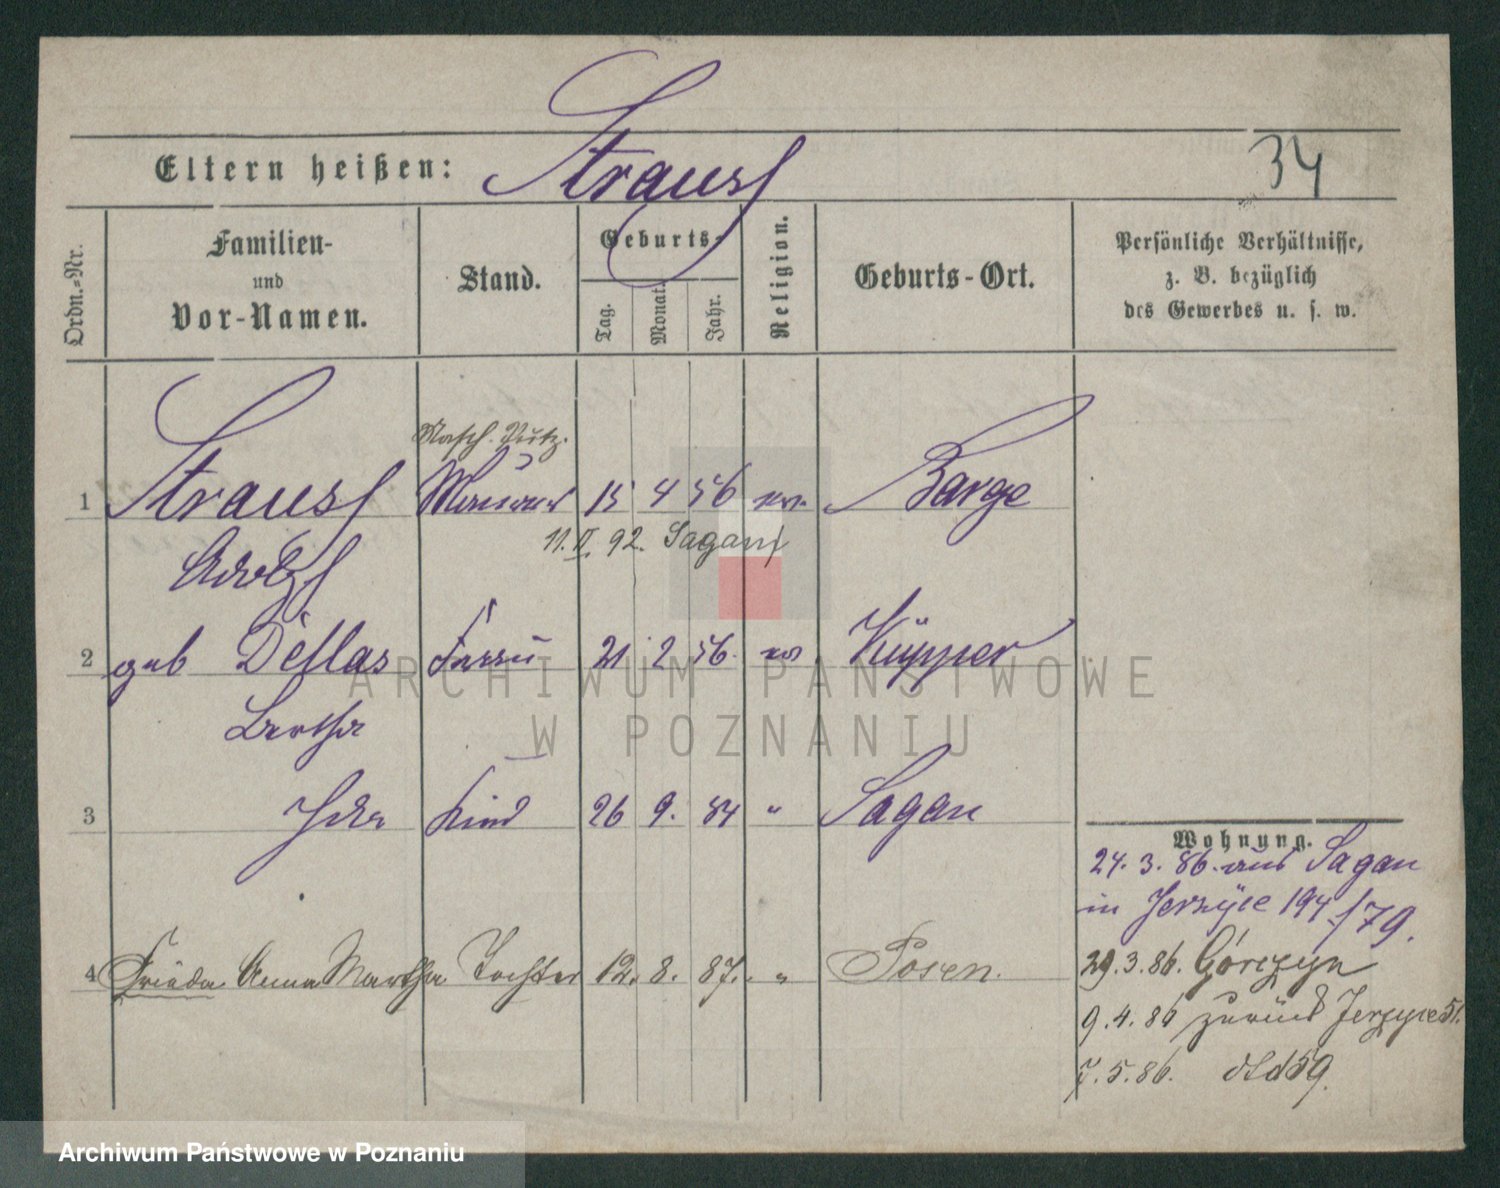 Eltern heißen: Strauss
34
Ordn.-Nr.
Familien-
und
Vor-Namen.
Stand.
Geburts-
Tag.
Monat.
Jahr.
Religion.
Geburts-Ort.
Persönliche Verhältnisse,
z. B. bezüglich
des Gewerbes u. s. w.
Masch. Putz.
1 Strauss Maurer 15 4 56 ev. Barge
11. II. 92. Sagan
Adolf
2 geb Dellas Frau 21 2 56. ev Küpper
Bertha
3 Ida Kind 26 9. 84 " Sagan
Wohnung.
24. 3. 86. aus Sagan
in Jerzyce 194/79.
4 Frieda Anna Martha Tochter 12. 8. 87. " Posen.
29.3.86. Górczyn
9.4.86 zurück Jerzyce 51.
7.5.86. dto 59.
ARCHIWUM PAŃSTWOWE
W POZNANIU
Archiwum Państwowe w Poznaniu